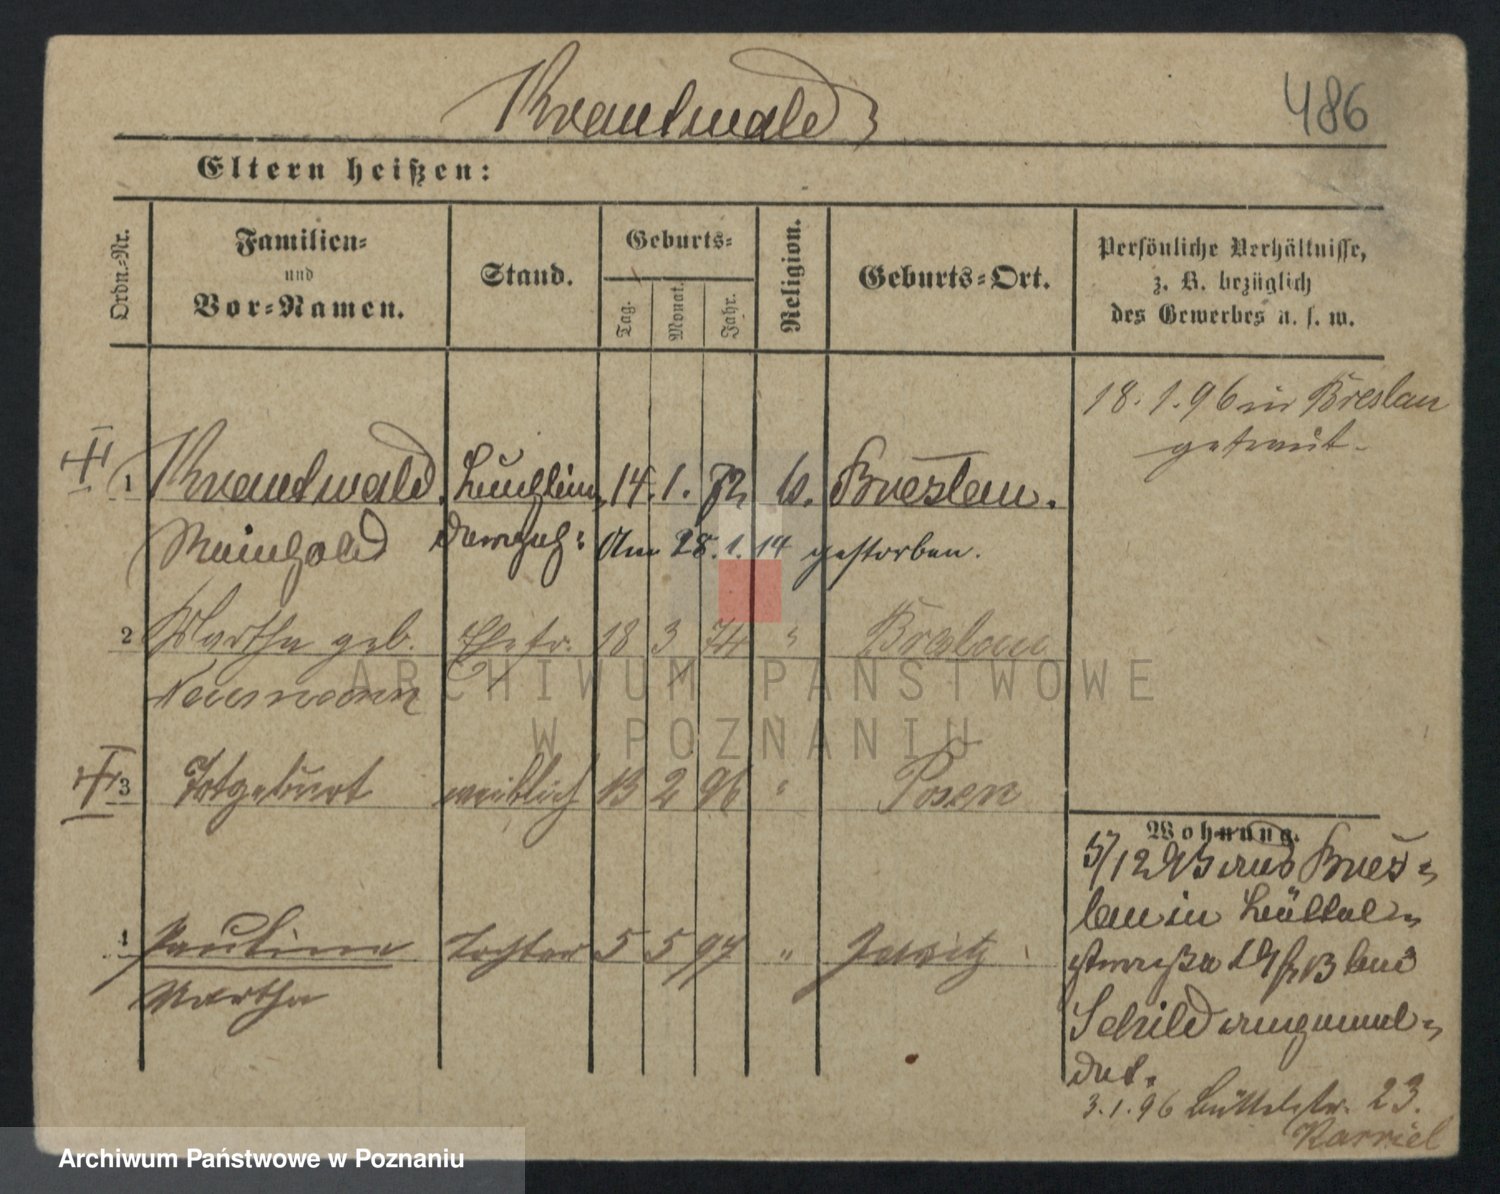 Krautwald
486
Eltern heißen:
Ordn.-Nr.
Familien-
und
Vor-Namen.
Stand.
Geburts-
Tag.
Monat.
Jahr.
Religion.
Geburts-Ort.
Persönliche Verhältnisse,
z. B. bezüglich
des Gewerbes u. s. w.
18. 1. 96 in Breslau
getraut.
1 Krautwald, 14. 1. 72 Breslau.
Reinhold Am 28. 1. 14 gestorben.
2 Martha geb. Ehefr. 18 3 74 " Breslau
Neumann
3 Totgeburt weiblich 13 2 96 " Posen
4 Pauline Tochter 5 5 97 " Jersitz
Martha
Wohnung.
5/12 95 aus Bres-
lau in Büttel-
straße 19 bei
Schild angemel-
det.
3. 1. 96 Büttelstr. 23.
ARCHIWUM PAŃSTWOWE
W POZNANIU
Archiwum Państwowe w Poznaniu